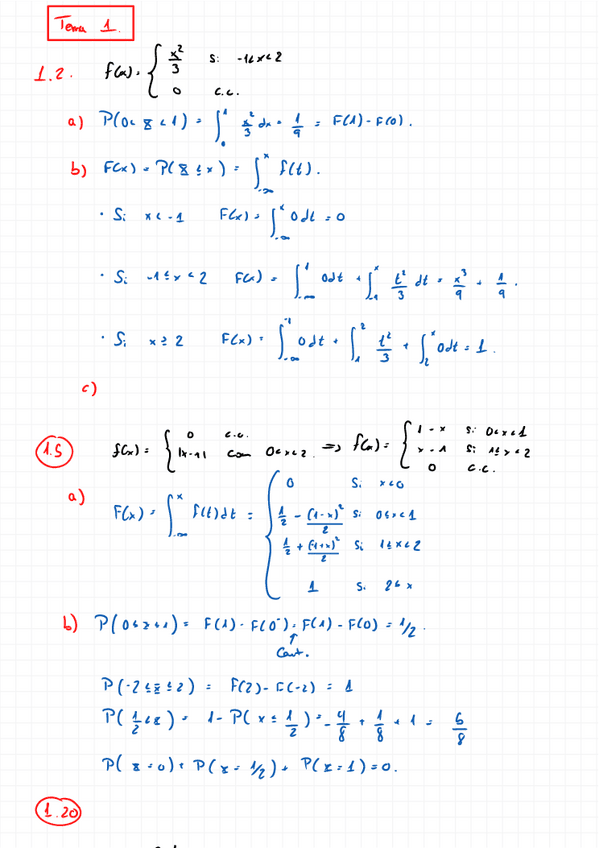 Tema 1.
1.2. f(x) = { x²/3 si -1<x<2
0 c.c.
a) P(0< X <1) = ∫₀¹ x²/3 dx = 1/9 = F(1)-F(0).
b) F(x) = P(X ≤ x) = ∫_{-∞}^{x} f(t).
· Si x < -1 F(x) = ∫_{-∞}^{x} 0 dt = 0
· Si -1 ≤ x < 2 F(x) = ∫_{-∞}^{-1} 0dt + ∫_{-1}^{x} t²/3 dt = x³/9 + 1/9.
· Si x ≥ 2 F(x) = ∫_{-∞}^{-1} 0dt + ∫_{-1}^{2} t²/3 + ∫_{2}^{x} 0dt = 1.
c)
1.5 f(x) = { 0 c.c. |x-1| con 0<x<2 ⇒ f(x) = { 1-x si 0<x<1
x-1 si 1≤x<2
0 c.c.
a) F(x) = ∫_{-∞}^{x} f(t)dt = { 0 si x<0
1/2 - (1-x)²/2 si 0<x<1
1/2 + (-1+x)²/2 si 1≤x<2
1 si 2≤x
b) P(0≤X≤1) = F(1)-F(0⁻) = F(1)-F(0) = 1/2.
↑
Cont.
P(-2≤X≤2) = F(2)-F(-2) = 1
P(1/2<X) = 1-P(X≤1/2) = -4/8 + 1/8 + 1 = 6/8
P(X=0) + P(X=1/2) + P(X=1) = 0.
1.20